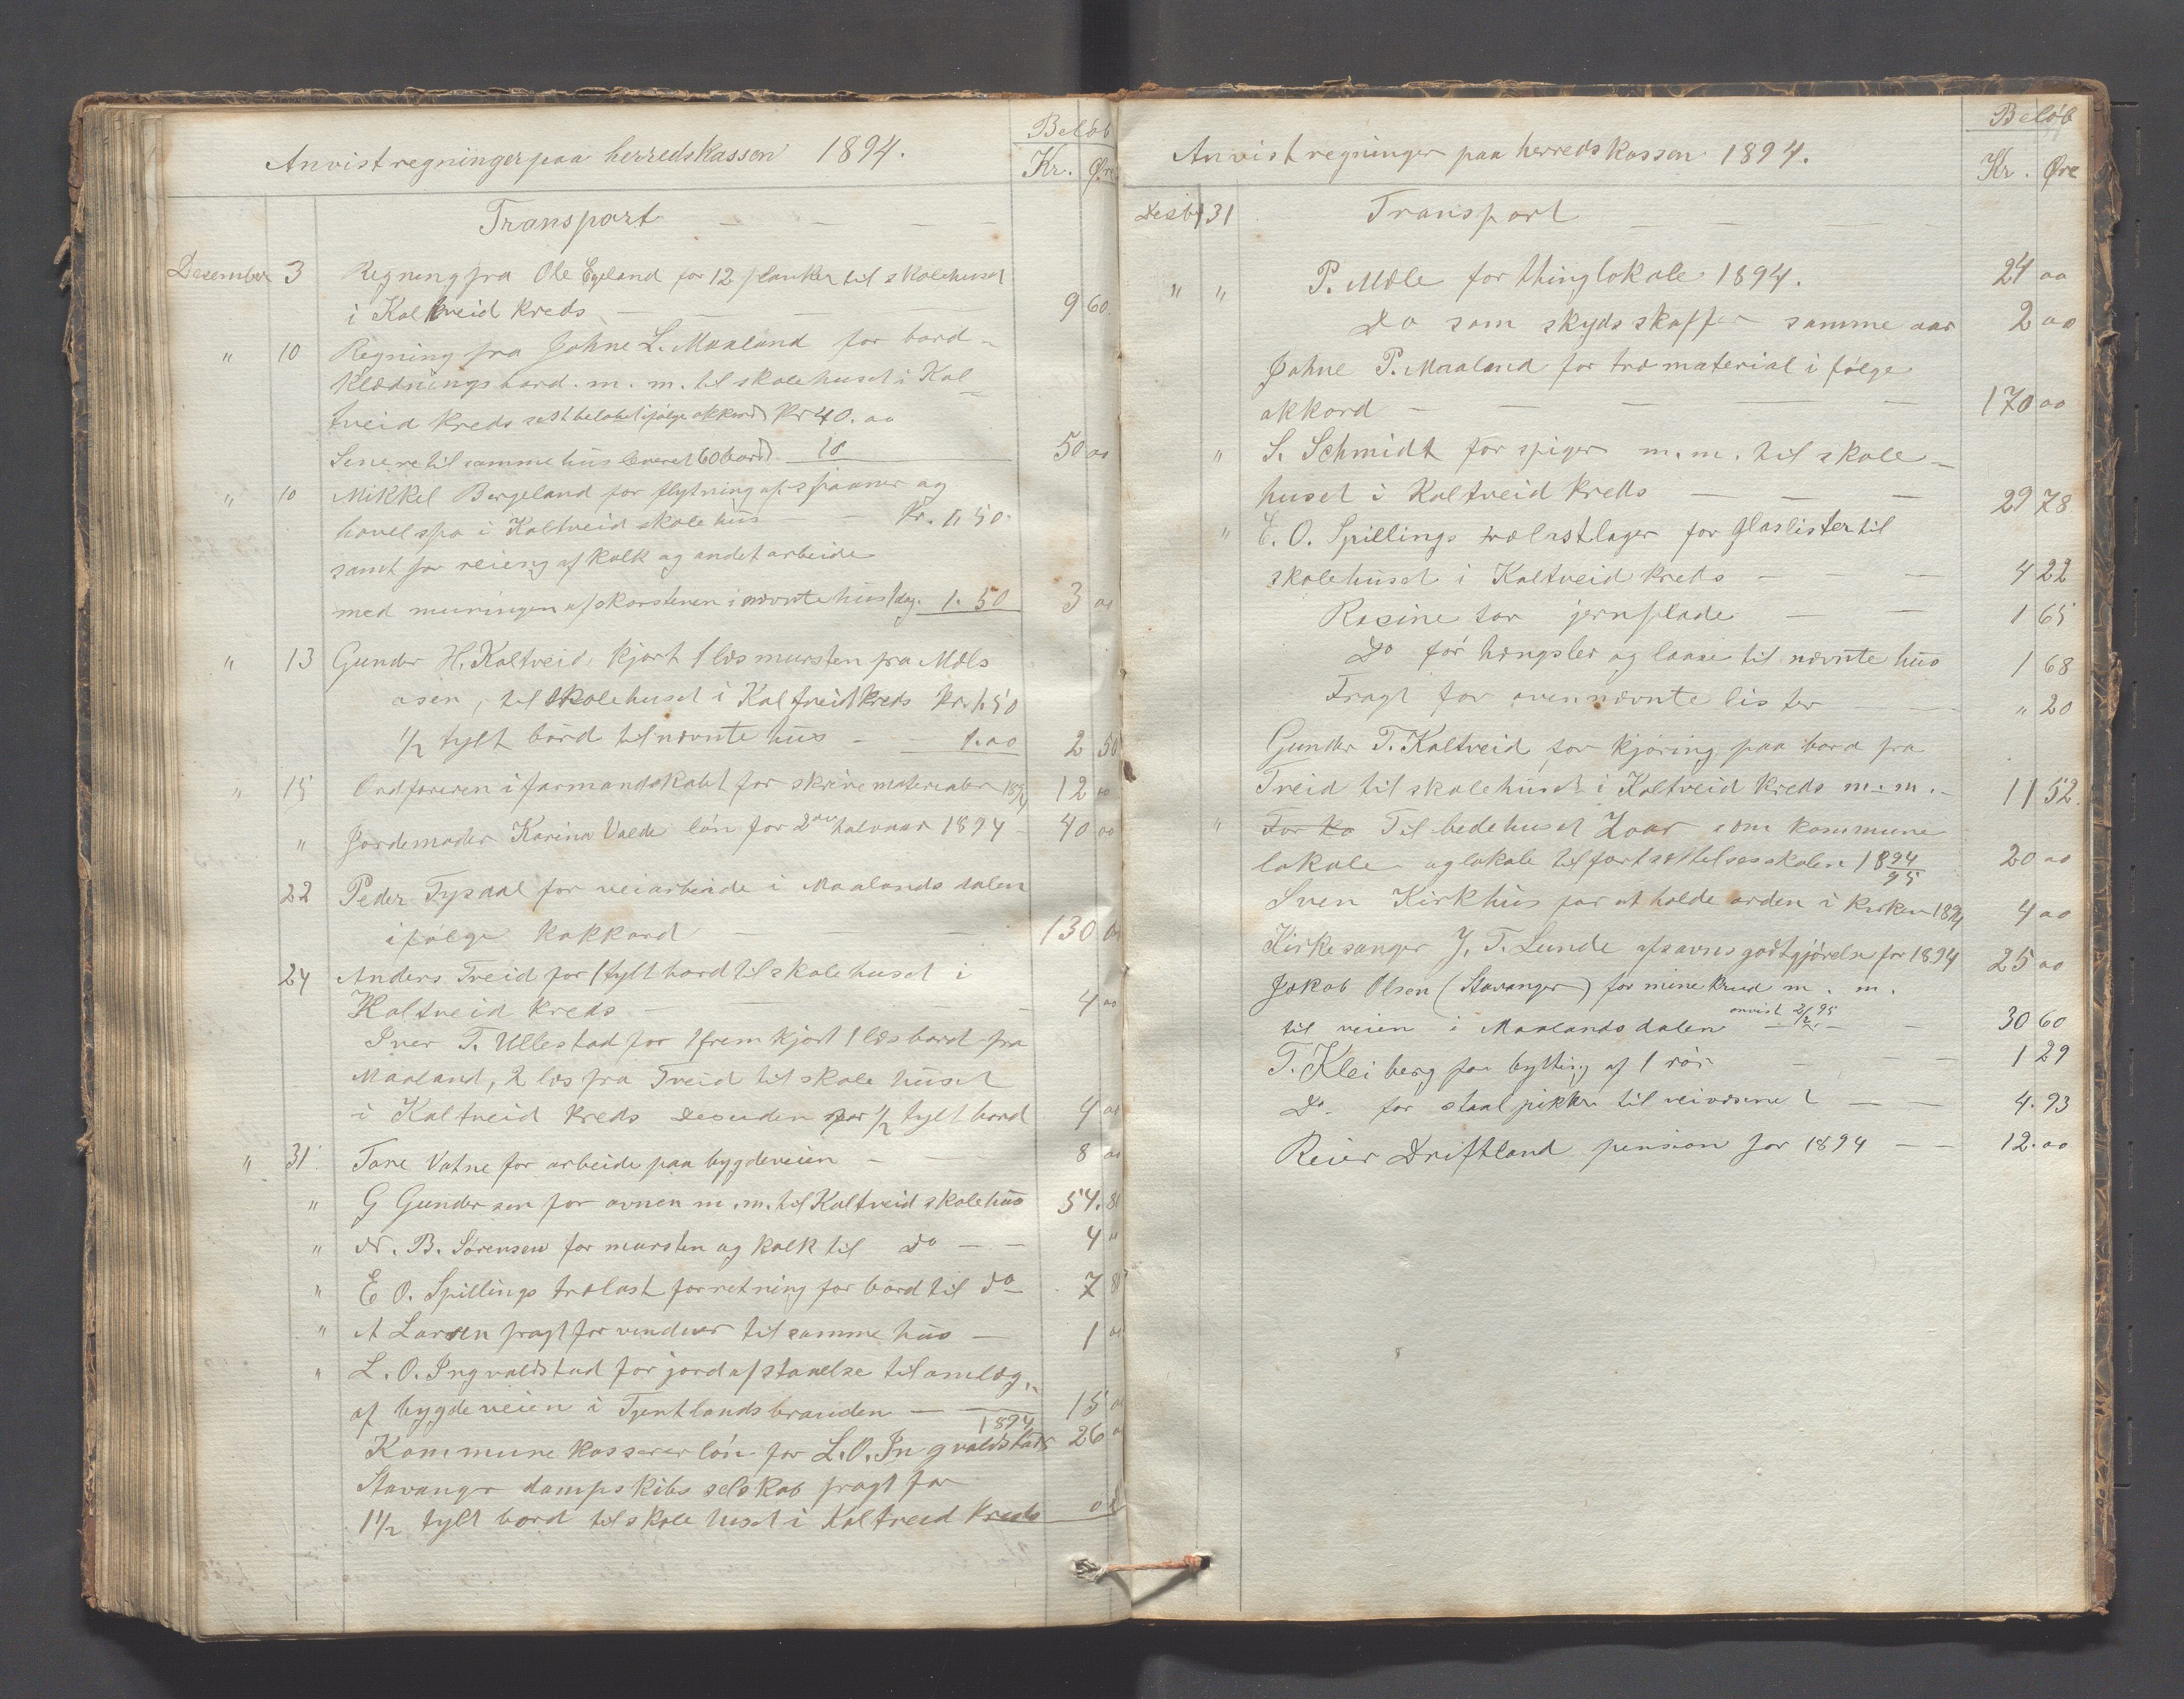 Beløb
Anvist regninger paa herredskassen 1894.
Kr. Øre
Transport
Desember 3 Regning fra Ole Egeland for 12 planker til skolehuset
i Kaltveid kreds 9 60.
" 10 Regning fra Johne L. Maaland for bord-
klædningsbord. m. m. til skolehuset i Kal-
tveid kreds beløbet ifølge akkord Kr 40. oo
Senere til samme hus leveret 60 bord 10 50 oo
" 10 Mikkel Bergeland for flytning af spaaner og
i Kaltveid skolehus Kr. 1,50.
samt for af kalk og andet arbeide
med muringen af skorstenen i nævnte hus 1 dag. 1. 50 3 oo
" 13 Gunder H. Kaltveid, kjørt 1 læs mursten fra Mæls
osen, til skolehuset i Kaltveid kreds kr. 1.50
1/2 tylt bord til nævnte hus - 1.oo 2 50
" 15 Ordføreren i formandskabet for skrivematerialer 1894 12 oo
" Jordemoder Karina Valde løn for 2det halvaar 1894 - 40 oo
22 Peder Tysdal for veiarbeide i Maalandsdalen
ifølge kakkord 130 oo
24 Anders Treid for 1 tylt bord til skolehuset i
Kaltveid kreds - 4 oo
Iver T. Ullestad for fremkjørt 1 læs bord fra
Maaland, 2 læs fra Treid til skolehuset
i Kaltveid kreds desuden for 1/2 tylt bord 4 oo
" 31. Tore Vatne for arbeide paa bygdeveien - 8 oo
" G Gundersen for ovnen m. m. til Kaltveid skolehus 54. 80
" N. B. Sørensen for mursten og kalk til Do - - 4 "
" E O. Spillings trælast forretning for bord til do 7 80
" A Larsen fragt for vinduer til samme hus - 1 oo
" L. O. Ingvaldstad for jordafstaaelse til omlæg.
af bygdeveien i Tjentlandsbranden - 15 oo
1894
Kommunekasserer løn for L. O. Ingvaldstad 26 oo
Stavanger dampskibs selskab fragt for
1 1/2 tylt bord til skolehuset i Kaltveid kreds
Beløb
Anvist regninger paa herredskassen 1894.
Kr. Øre
Desbr 31 Transport
" " P. Mæle for thinglokale 1894. 24 oo
Do som skydsskaffer samme aar 2 oo
Johne P. Maaland for træmaterial i følge
akkord - 170 oo
" S. Schmidt for spiger m. m. til skole-
huset i Kaltveid kreds 29 78
" E. O. Spillings trælastlager for glaslister til
skolehuset i Kaltveid kreds - 4 22
Rosine for jernplade - 1 65
Do for hængsler og laase til nævnte hus 1 68
Fragt for ovennævnte lister " 20
Gunder T. Kaltveid for kjøring paa bord fra
Treid til skolehuset i Kaltveid kreds m. m. - 11 52.
" For ko Til bedehuset Zoar som kommune
lokale og lokale til fortsættelsesskolen 1894/95 20 oo
Sven Kirkhus for at holde orden i kirken 1894 4 oo
Kirkesanger J. T. Lunde afsavns godtgjørelse for 1894 25 oo
Jakob Olsen (Stavanger) for minekrud m. m.
anvist 2/2 95
til veien i Maalandsdalen 30 60
T. Kleiberg for bytting af 1 rør - 1 29
Do. for staalpikker til veivæsenet - 4. 93
Reier Driftland pension for 1894 - - 12. oo